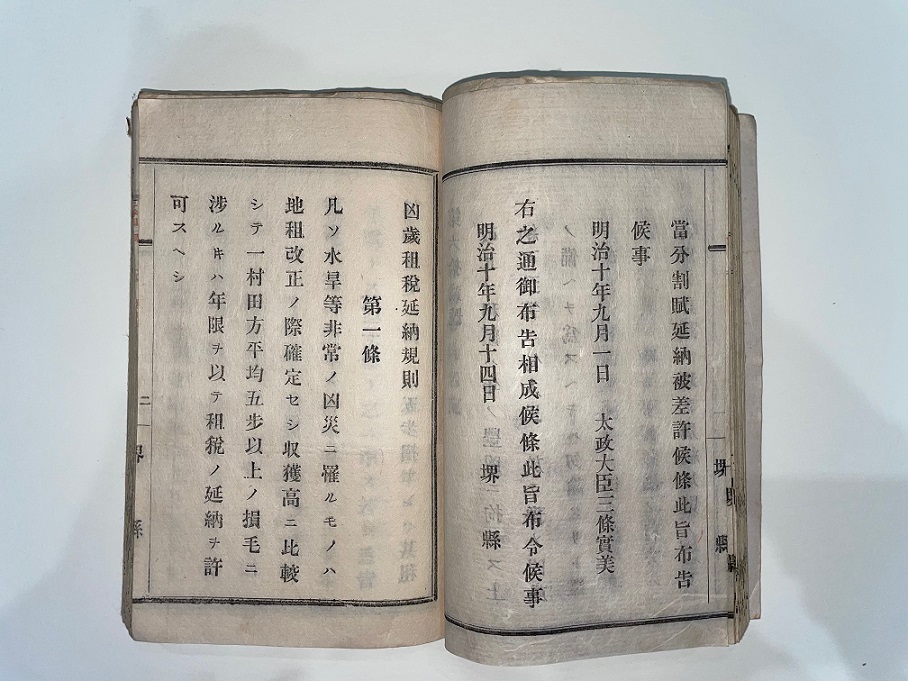 當分割賦延納被差許候條此旨布告
候事
明治十年九月一日 太政大臣三條實美
右之通御布告相成候條此旨布令候事
明治十年九月十四日 堺縣
凶歲租稅延納規則
第一條
凡ソ水旱等非常ノ凶災ニ罹ルモノハ
地租改正ノ際確定セシ収獲高ニ比較
シテ一村田方平均五步以上ノ損毛ニ
涉ルキハ年限ヲ以テ租稅ノ延納ヲ許
可スヘシ
二
堺縣